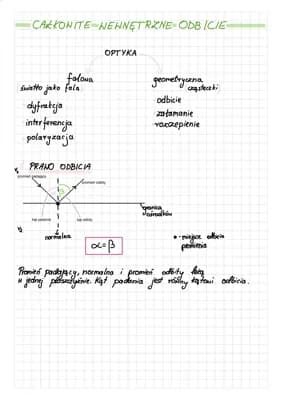 CAŁKOWITE WEWNĘTRZNE ODBICIE
OPTYKA
falowa
światło jako fala
· dyfrakcja
· interferencja
· polaryzacja
geometryczna
cząsteczki
· odbicie
· załamanie
· rozszczepienie
PRAWO ODBICIA
promień padający
promień odbity
kąt padania
kąt odbicia
granica
ośrodków
normalna
α=β
• - miejsce odbicia
promienia
Promień padający, normalna i promień odbity leżą
w jednej płaszczyźnie. Kąt padania jest równy kątowi odbicia.